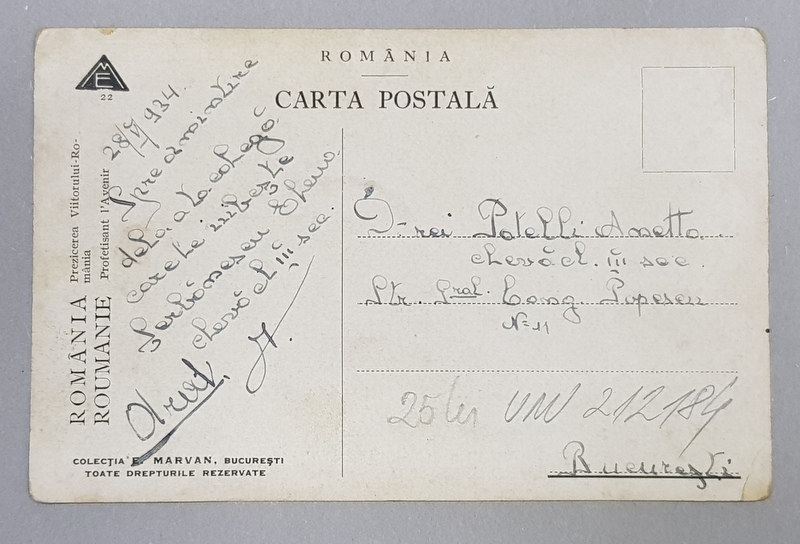 ROMÂNIA
CARTA POSTALĂ
ME
22
ROMÂNIA
Prezicerea Viitorului-Ro-
mânia
ROUMANIE
Profetisant l'Avenir
28/VI/934
Spre amintire
dela a ta colegă
care te iubeşte
Şerbănescu
elevă cl. III sec.
D-rei Potelli Anetta
elevă cl. III sec.
Str. Gral. Popescu
No 11
Bucureşti
25 lei VMV 212184
COLECŢIA E. MARVAN, BUCUREŞTI
TOATE DREPTURILE REZERVATE